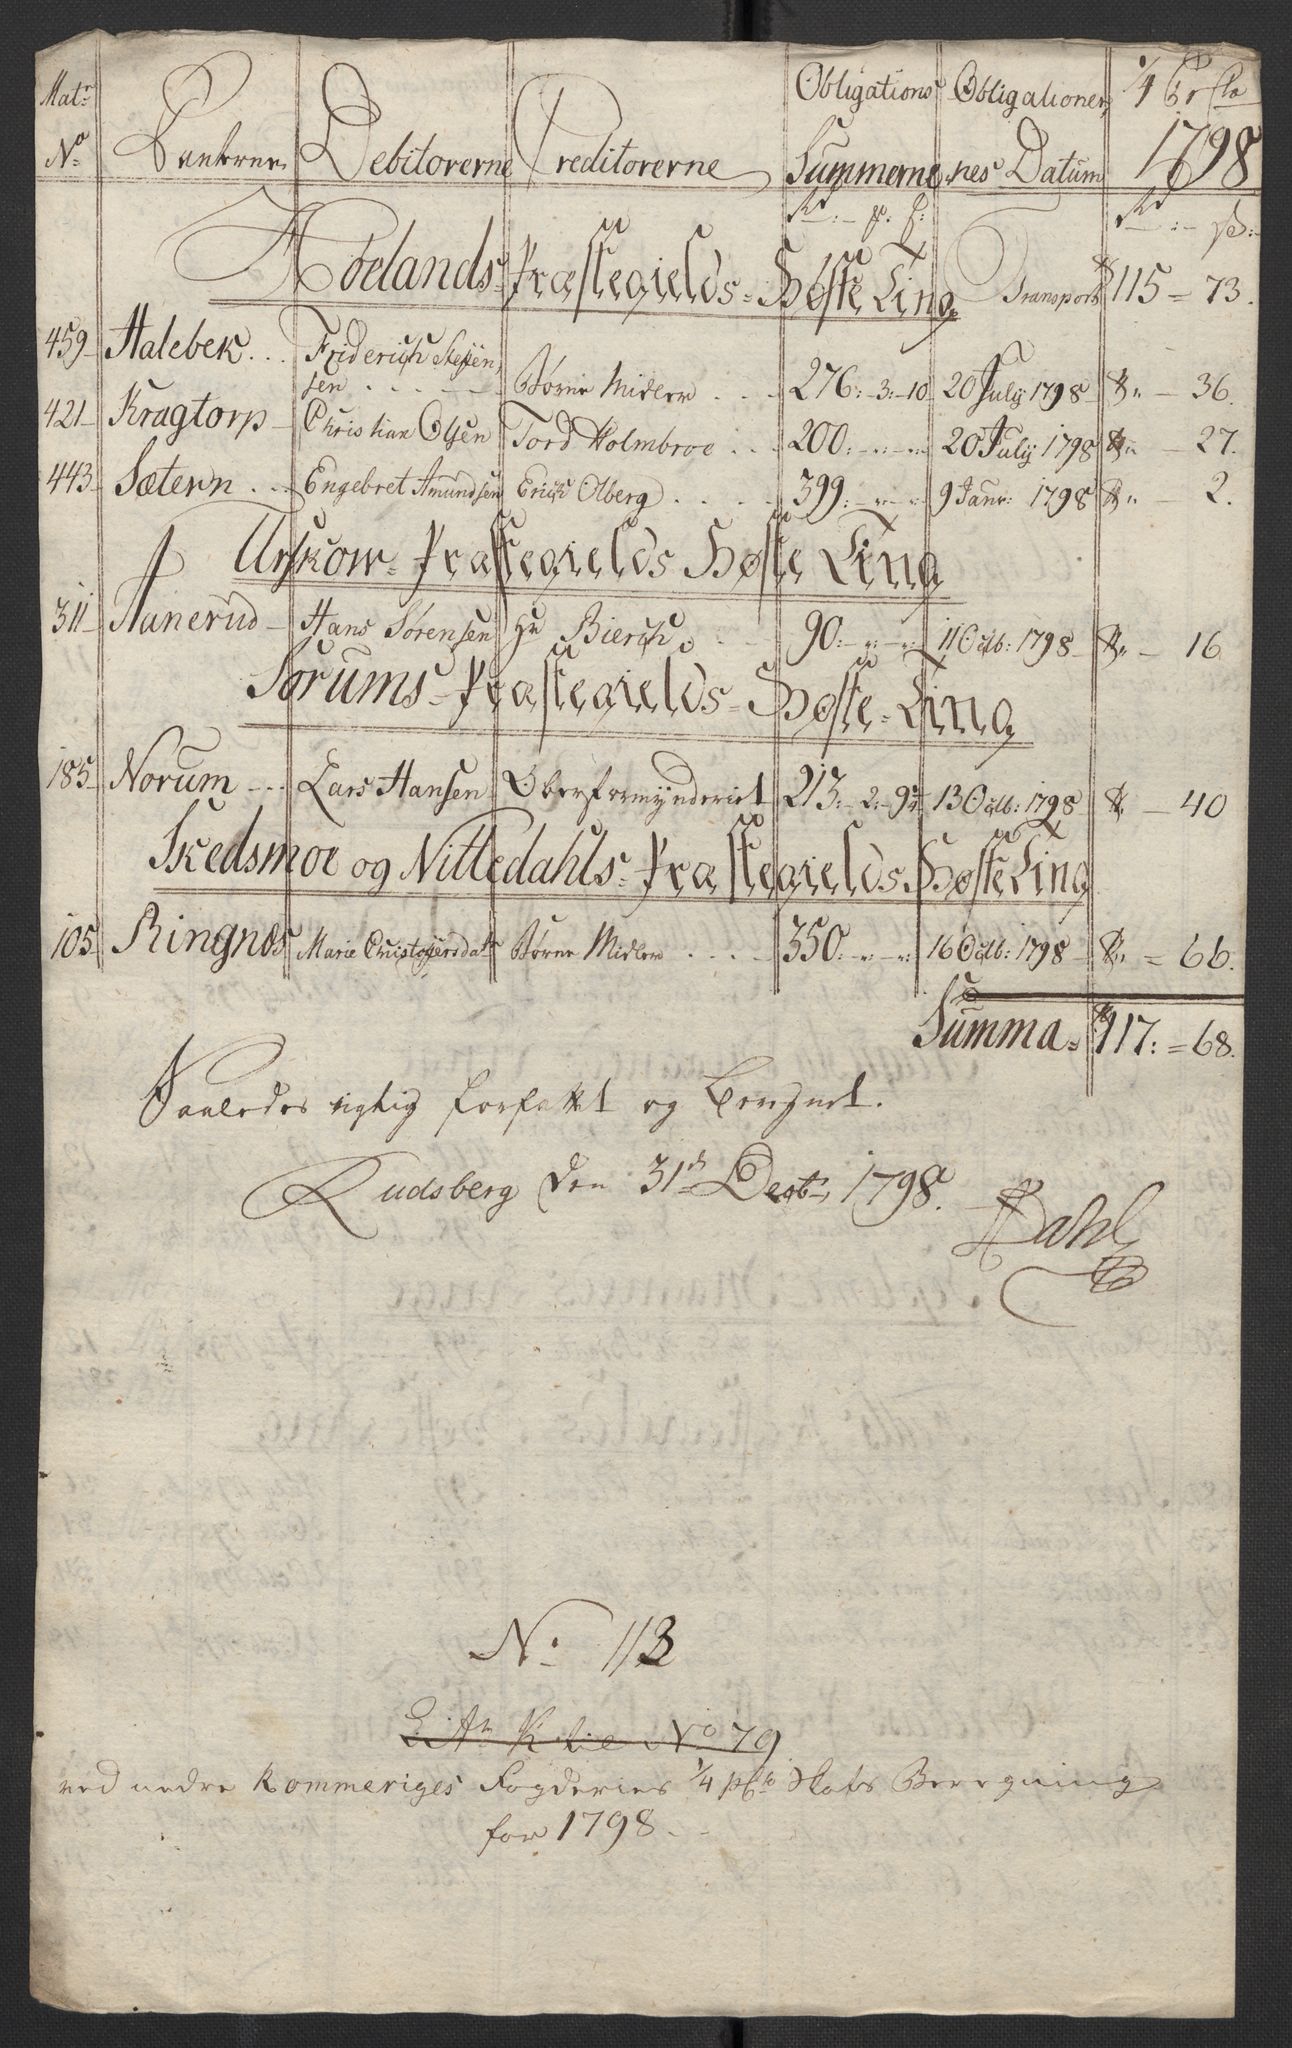 Matr Obligations Obligationer, ¼ Pr Cto
No Panterne Debitorerne Creditorerne Summerne nes Datum 1798
Rd :- s:
Høelands Præstegields Høste Ting Transport 115 = 73.
459 Halebek... Friderich Steen
sen . . . . Børne Midler . . . 276:-3:-10 20 July 1798 - 36.
421 Kragtorp Christian Olsen Tord Holmbroe . . 200:-"-" 20 July 1798 - 27.
443 Sætern... Engebret Amundsen Erich Olberg . . . . 399:-"-" 9 Janr: 1798 - 2.
Urskow Præstegields Høste Ting
311 Hanerud Hans Sørensen Hr Bierch . . 90:-"-" 11 Octb: 1798 - 16
Sørums Præstegields Høste Ting
185 Norum... Lars Hansen Oberformynderiet 213:-2:-9 13 Octb: 1798 - 40
Skedsmoe og Nittedahls Præstegields Høste Ting
105 Ringnæs Marie Christophersdatr Børne Midler . . . . 350:-"-" 16 Octb: 1798 = 66.
Summa = 117:=68.
Saaledes rigtig forfattet og beregnet.
Rudsberg den 31d Decbr 1798.
Dahl
No 113
No 79
ved nedre Rommeriges Fogderies ¼ pCto Skats Beregning
for 1798.